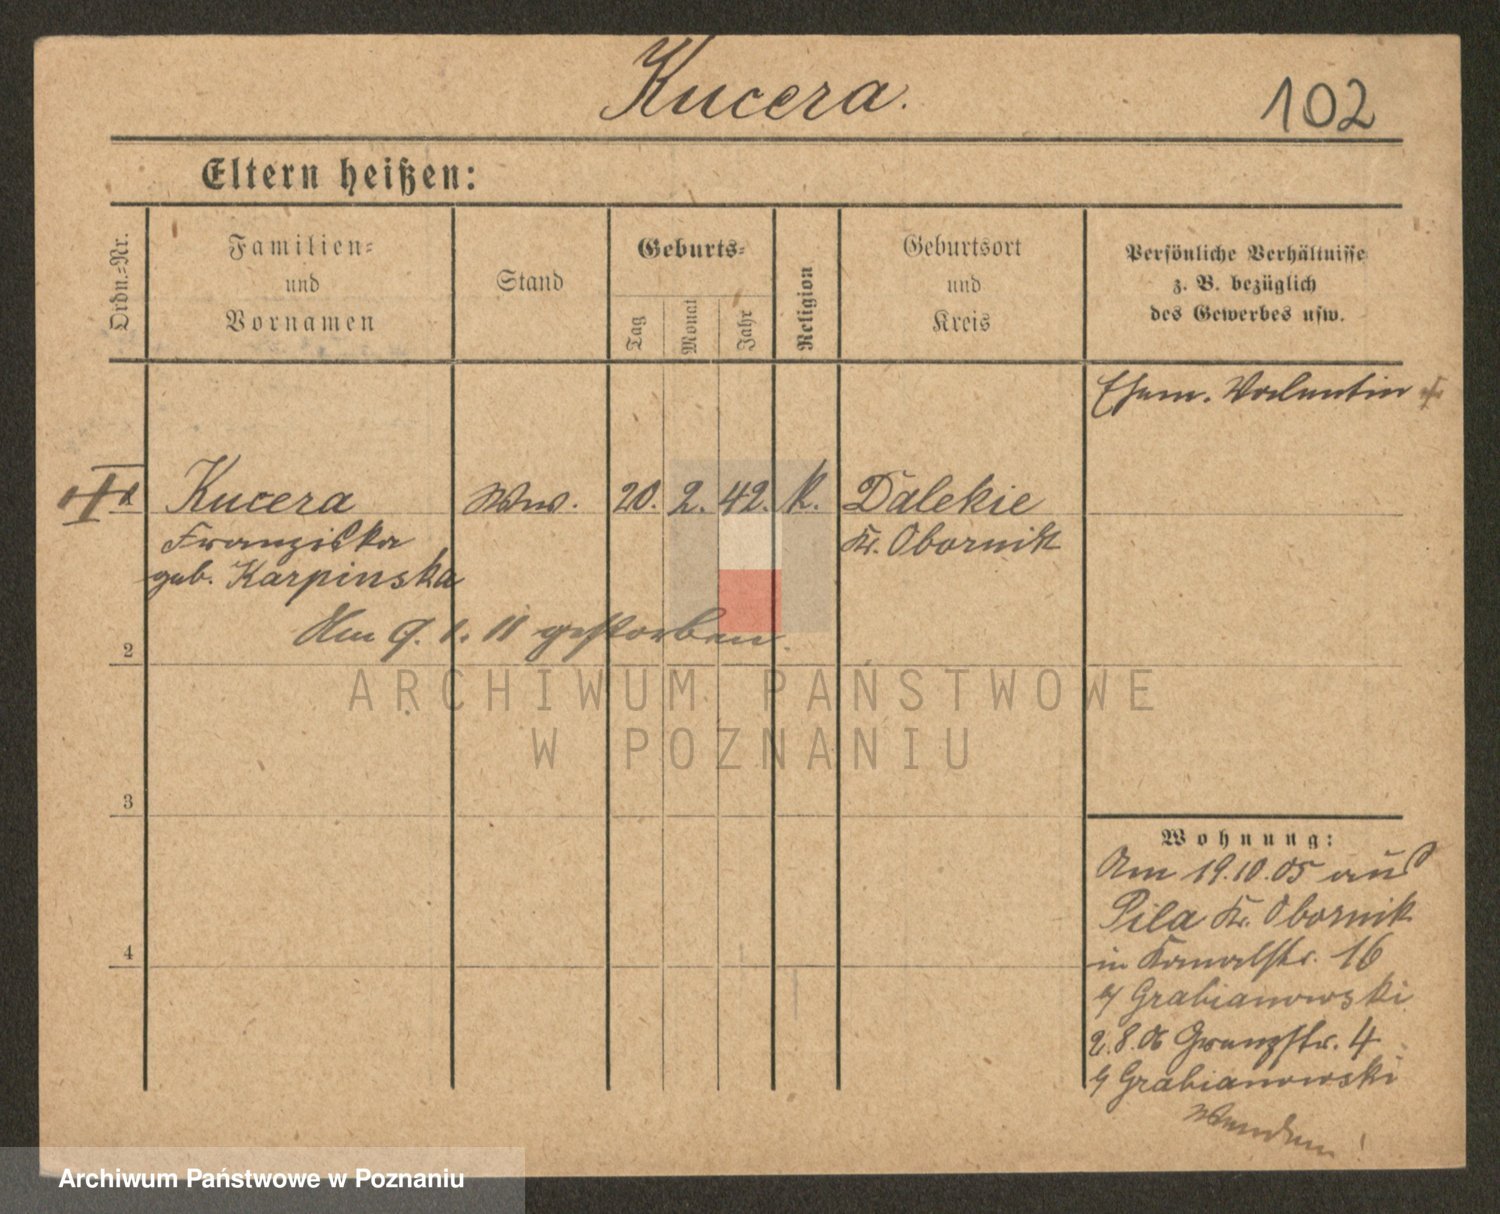 Kucera.
102
Eltern heißen:
Ordn.=Nr.
Familien=
und
Vornamen
Stand
Geburts=
Tag
Monat
Jahr
Religion
Geburtsort
und
Kreis
Persönliche Verhältnisse
z. B. bezüglich
des Gewerbes usw.
Ehem. Valentin +
Kucera
Ww.
20.
2.
42.
k.
Dalekie
Franziska
Kr. Obornik
geb. Karpinska
Am 9. 1. 11 gestorben.
2
ARCHIWUM PAŃSTWOWE
W POZNANIU
3
Wohnung:
Am 19.10.05 aus
Pila Kr. Obornik
4
in Kanalstr. 16
Grabianowski
2.8.06 Grenzstr. 4
Grabianowski
Wenden!
Archiwum Państwowe w Poznaniu